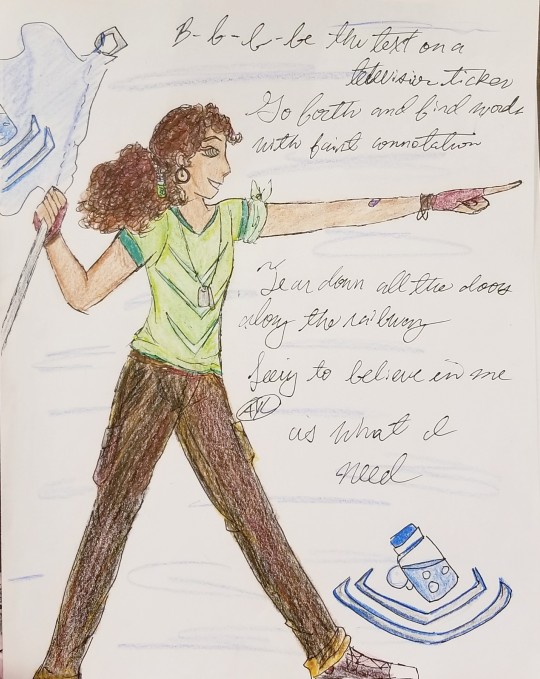 B-b-b-be the text on a
television ticker
Go forth and find words
with faint connotation
Tear down all the doors
along the railway
Seeing to believe in me
is what I
need